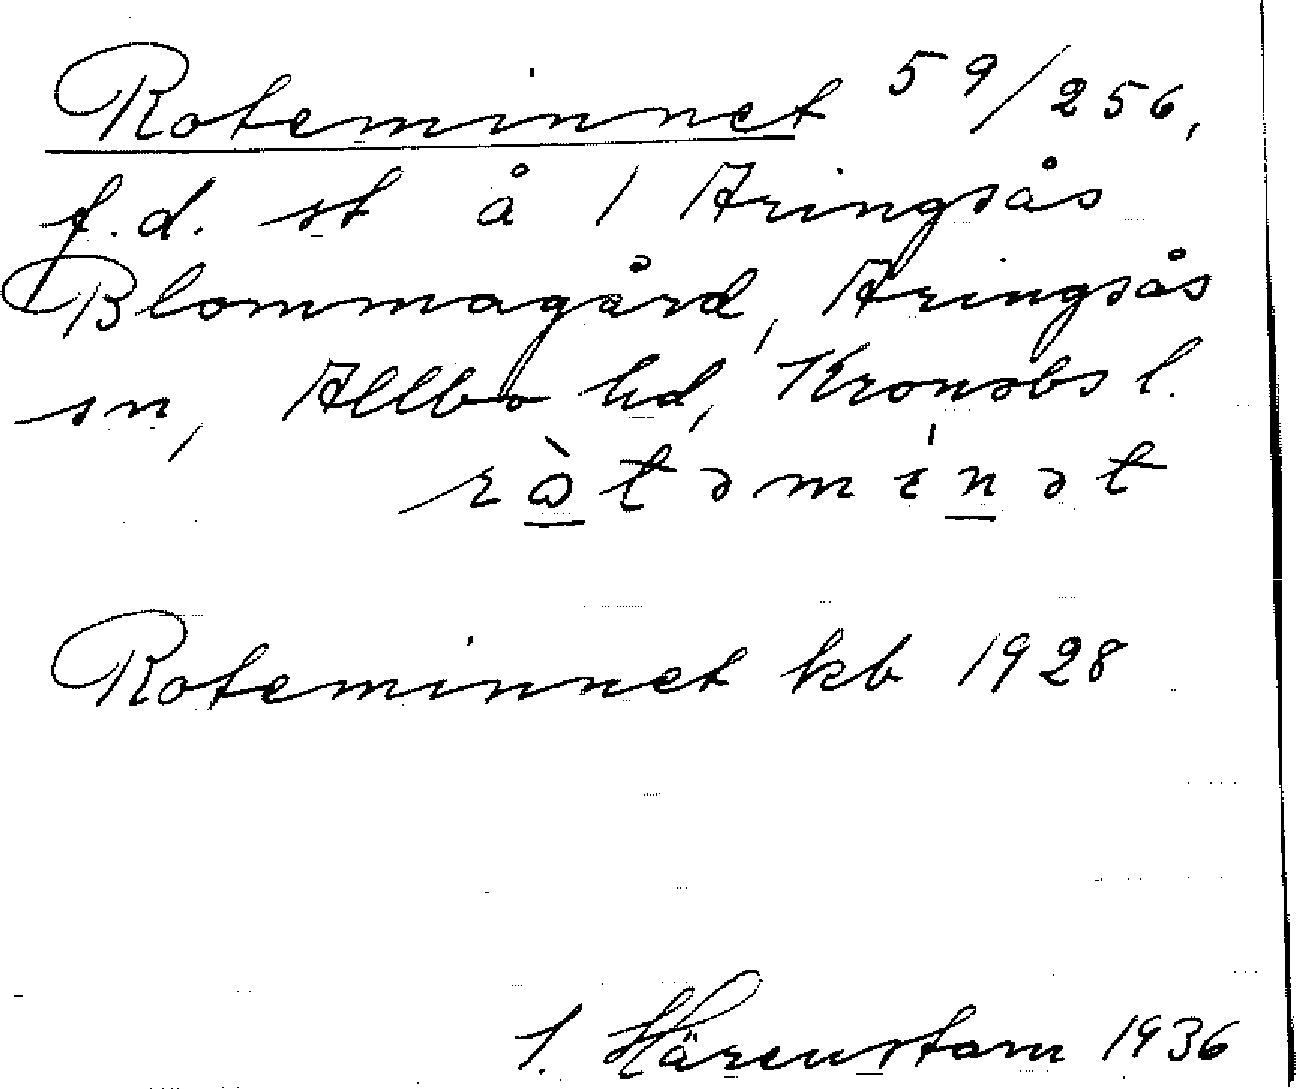 Roteminnet 59/256,
f.d. st å 1 Aringsås
Blommagård, Aringsås
sn, Allbo hd, Kronobs l.
ròtəmi'nət
Roteminnet kb 1928
1. Härenstam 1936